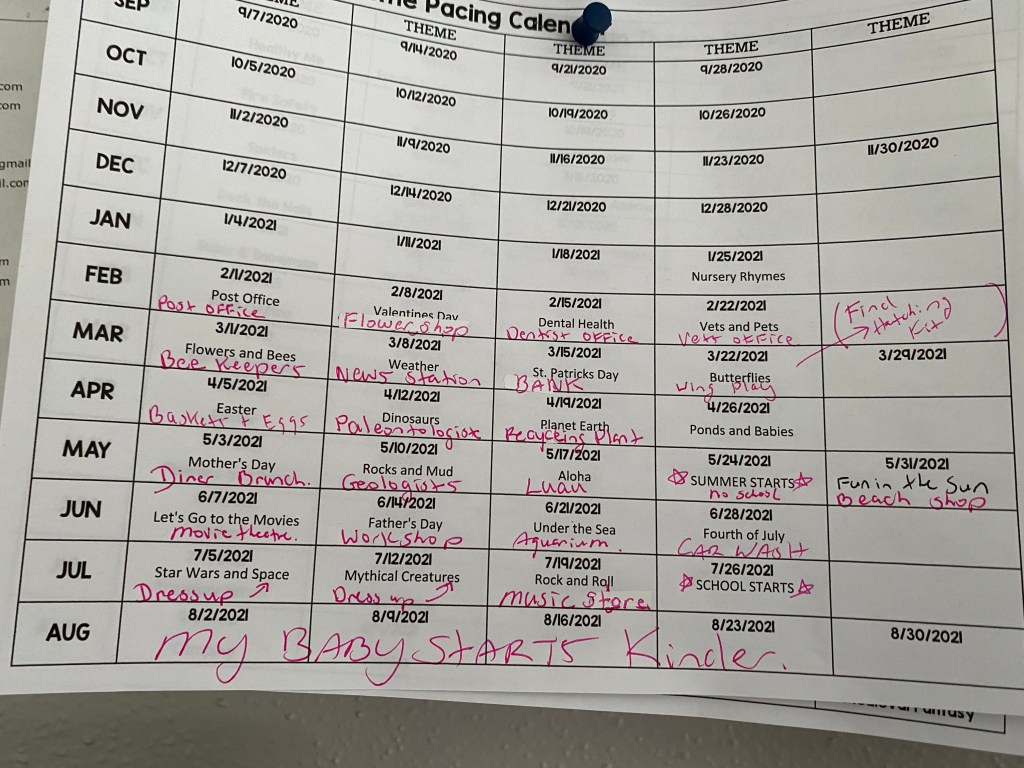 me Pacing Calen
SEP
ME
THEME
THEME
THEME
THEME
9/7/2020
9/14/2020
9/21/2020
9/28/2020
OCT
10/5/2020
10/12/2020
10/19/2020
10/26/2020
NOV
11/2/2020
11/9/2020
11/16/2020
11/23/2020
11/30/2020
DEC
12/7/2020
12/14/2020
12/21/2020
12/28/2020
JAN
1/4/2021
1/11/2021
1/18/2021
1/25/2021
Nursery Rhymes
FEB
2/1/2021
Post Office
Post office
2/8/2021
Valentines Day
Flower shop
2/15/2021
Dental Health
Dentist office
2/22/2021
Vets and Pets
Vets office
(Find
→ Hatching
Kit)
MAR
3/1/2021
Flowers and Bees
Bee Keepers
3/8/2021
Weather
News Station
3/15/2021
St. Patricks Day
BANK
3/22/2021
Butterflies
wing play
3/29/2021
APR
4/5/2021
Easter
Baskets + Eggs
4/12/2021
Dinosaurs
Paleontologist
4/19/2021
Planet Earth
Recyceing Plant
4/26/2021
Ponds and Babies
MAY
5/3/2021
Mother's Day
Diner Brunch.
5/10/2021
Rocks and Mud
Geologists
5/17/2021
Aloha
Luau
5/24/2021
☆SUMMER STARTS☆
no school
5/31/2021
Fun in the Sun
Beach shop
JUN
6/7/2021
Let's Go to the Movies
movie theatre.
6/14/2021
Father's Day
Workshop
6/21/2021
Under the Sea
Aquarium.
6/28/2021
Fourth of July
CAR WASH
JUL
7/5/2021
Star Wars and Space
Dress up ↗
7/12/2021
Mythical Creatures
Dress up ↗
7/19/2021
Rock and Roll
music store
7/26/2021
☆SCHOOL STARTS☆
AUG
8/2/2021
8/9/2021
8/16/2021
8/23/2021
8/30/2021
my BABY STARTS Kinder.
com
com
gmail
l.com
m
m
Fantasy